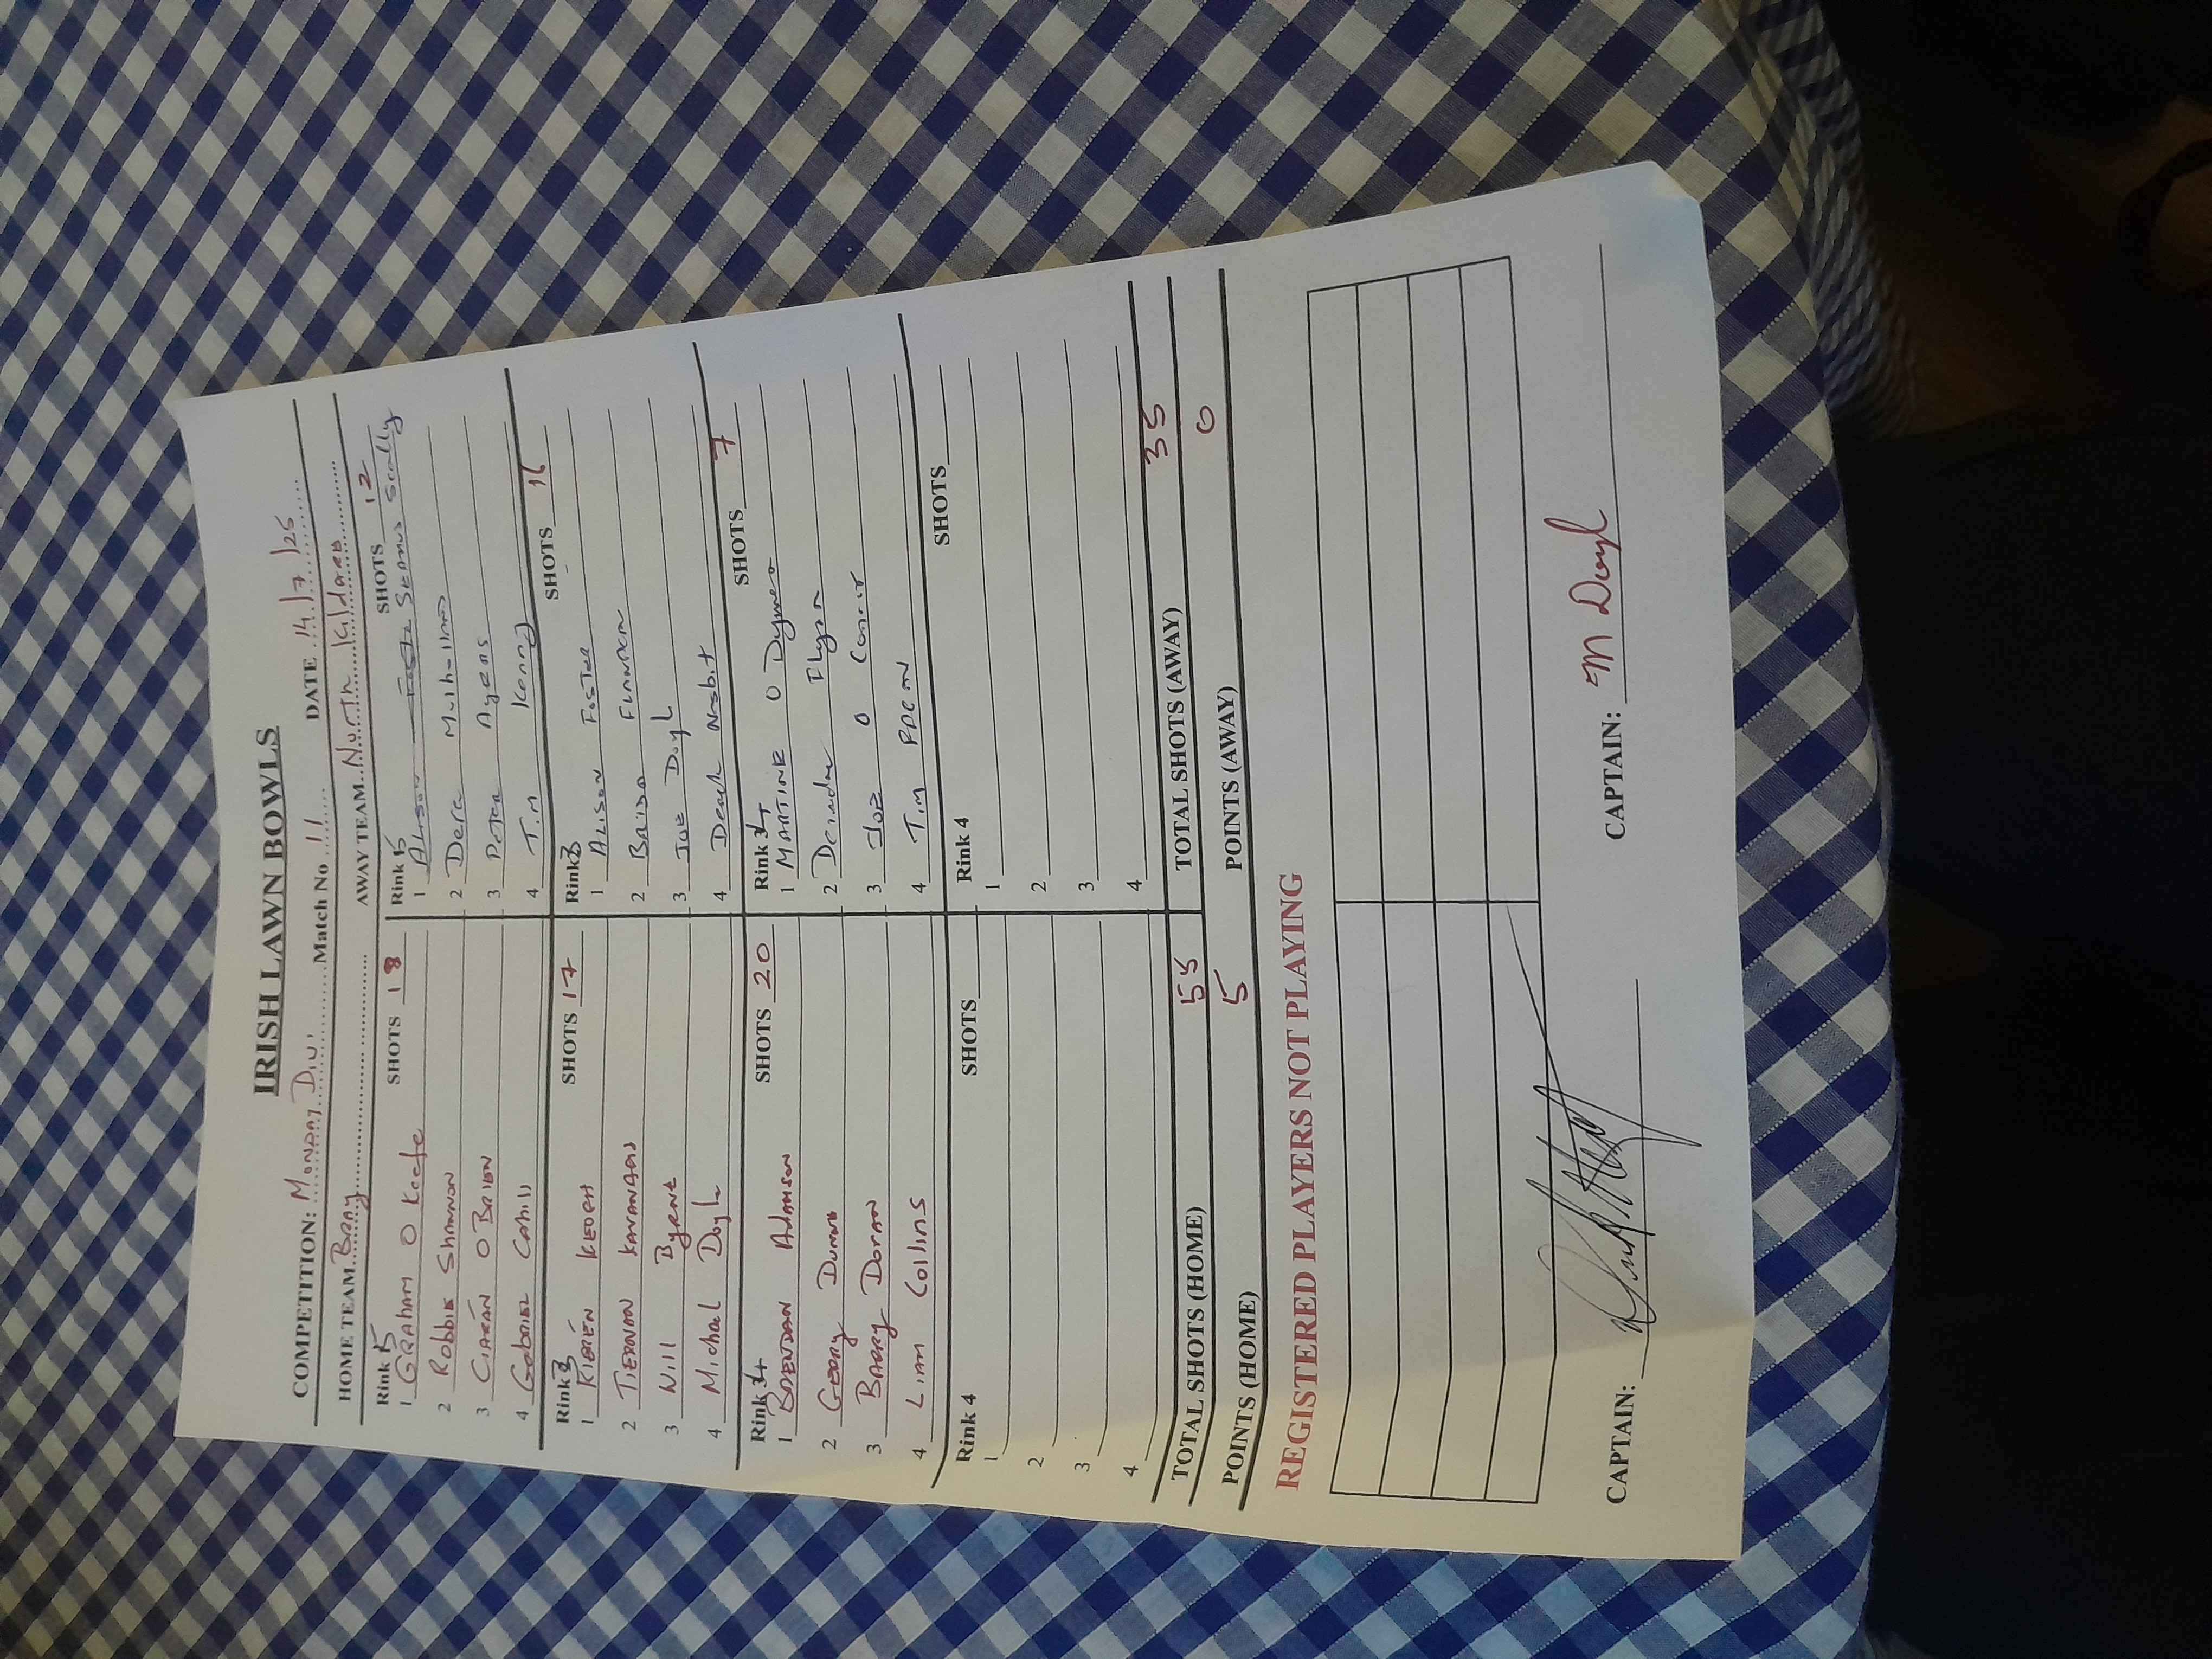 IRISH LAWN BOWLS
COMPETITION: MONDAY Div 1 Match No 11 DATE 14/7/25
HOME TEAM BRAY AWAY TEAM North Kildare
Rink 5 SHOTS 18
1 GRAHAM O Keefe
2 Robbie Shannon
3 CIARÁN O BRIEN
4 Gabriel Cahill
Rink 5 SHOTS 12
1 Alison Foster Seamus Scally
2 Derc Mulhollann
3 Peter Ayers
4 Tim Kenny
Rink 3 SHOTS 17
1 KIERÉN KEOGH
2 TIERNAN KAVANAGH
3 Will Byrne
4 Michael Doyle
Rink 3 SHOTS 16
1 ALISON FOSTER
2 BRIDA FLANAGAN
3 JOE Doyle
4 Derek Nesbit
Rink 4 SHOTS 20
1 BRENDAN ADAMSON
2 GERRY DUNNE
3 BARRY DORAN
4 LIAM Collins
Rink 4 SHOTS 7
1 MARTINE O Dymna
2 Deirdre Flynn
3 JOE O Connor
4 TIM
Rink 4 SHOTS
1
2
3
4
Rink 4 SHOTS
1
2
3
4
TOTAL SHOTS (HOME) 55 TOTAL SHOTS (AWAY) 35
POINTS (HOME) 5 POINTS (AWAY) 0
REGISTERED PLAYERS NOT PLAYING
CAPTAIN: CAPTAIN: M Doyle